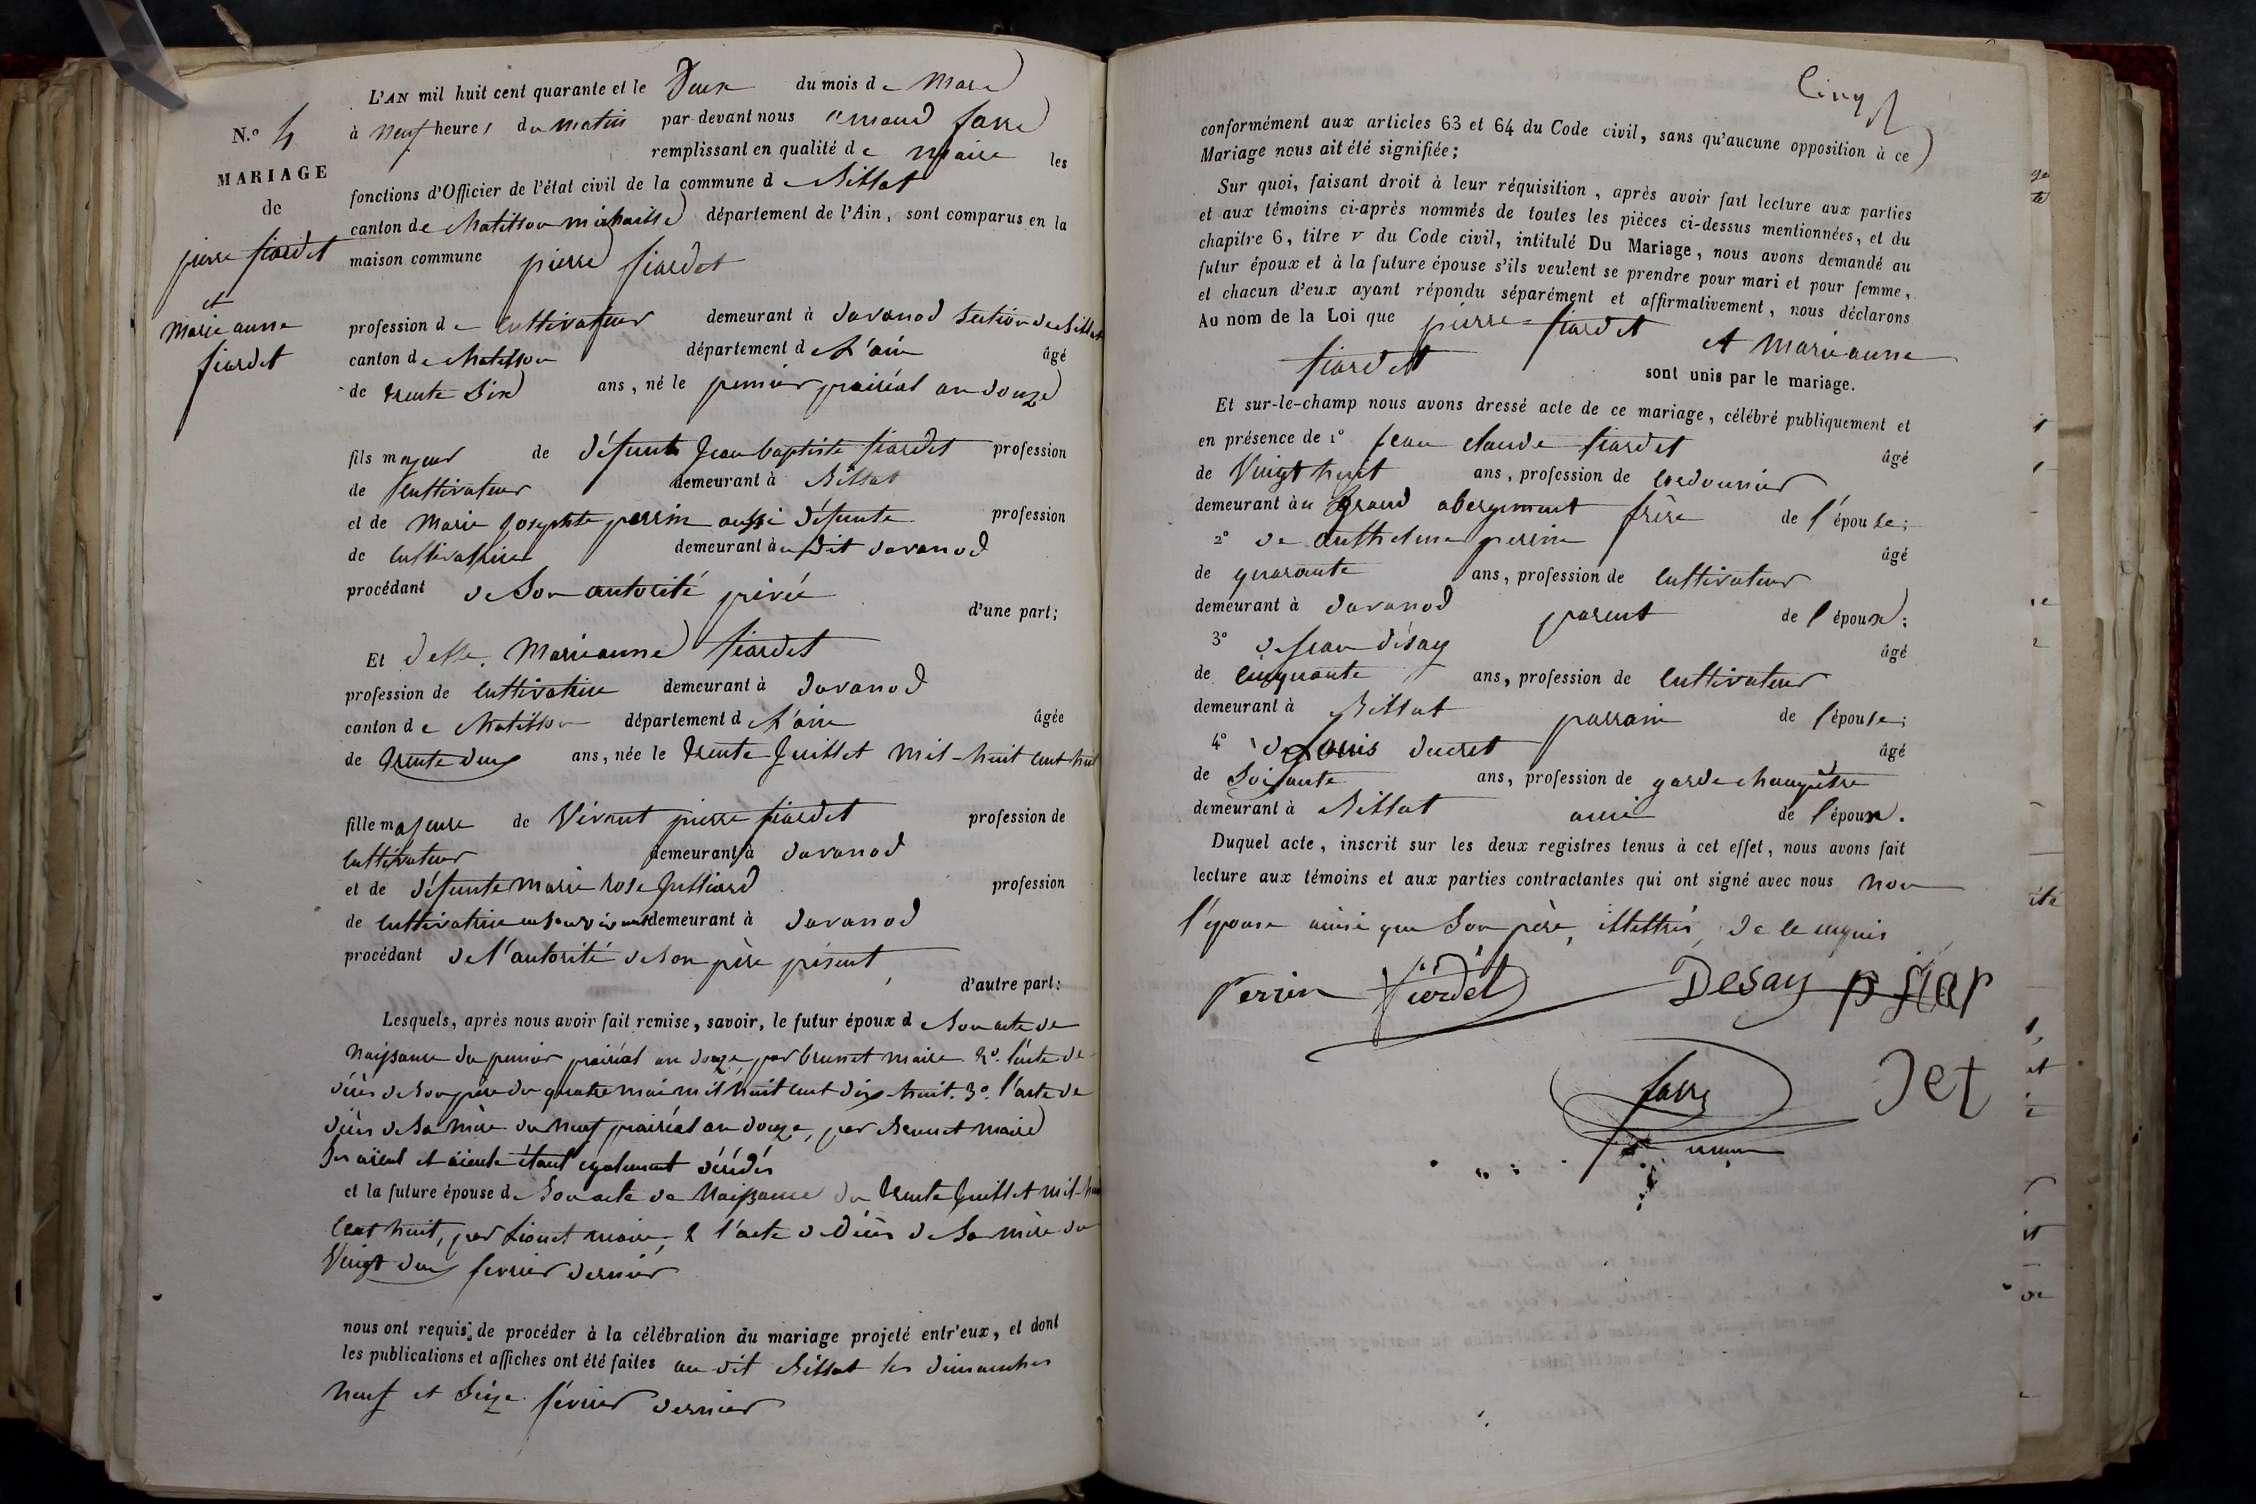 L'AN mil huit cent quarante et le Deux du mois de Mars
N.º 4
à neuf heures du matin par-devant nous favre
remplissant en qualité de Maire les
MARIAGE
fonctions d'Officier de l'état civil de la commune d Billiat
de
canton de Chatillon michaille département de l'Ain, sont comparus en la
pierre fiardet
maison commune pierre fiardet
et
Marie anne
fiardet
profession de cultivateur demeurant à davanod section de Billiat
canton de Chatillon département de L'ain âgé
de trente six ans, né le premier prairéal an douze
fils majeur de défunt Jean baptiste fiardet profession
de cultivateur demeurant à Billiat
et de Marie Josephte perrin aussi défunte profession
de cultivatrice demeurant au dit davanod
procédant de Son autorité privée
d'une part;
Et delle. Marieanne fiardet
profession de cultivatrice demeurant à davanod
canton de Chatillon département de L'ain âgée
de trente deux ans, née le trente Juillet mil-huit cent huit
fille majeure de Vivant pierre fiardet profession de
cultivateur demeurant à davanod
et de défunte marie rose Julliard profession
de cultivatrice en son vivant demeurant à davanod
procédant de l'autorité de son père présent
d'autre part:
Lesquels, après nous avoir fait remise, savoir, le futur époux de Son acte de
Naissance du premier prairéal an douze, par brunet maire 2º. l'acte de
décès de Son père du quatre mai mil huit cent dix-huit. 3º. l'acte de
décès de Sa mère du neuf prairéal an douze, par Brunet maire
Ses aïeul et aïeule étant également décédés
et la future épouse de Son acte de Naissance du trente Juillet mil-huit
cent huit, par Lionet maire, 2 l'acte de décès de Sa mère du
Vingt deux fevrier dernier
nous ont requis de procéder à la célébration du mariage projeté entr'eux, et dont
les publications et affiches ont été faites au dit Billiat les dimanches
neuf et Seize février dernier
Cinq
conformément aux articles 63 et 64 du Code civil, sans qu'aucune opposition à ce
Mariage nous ait été signifiée;
Sur quoi, faisant droit à leur réquisition, après avoir fait lecture aux parties
et aux témoins ci-après nommés de toutes les pièces ci-dessus mentionnées, et du
chapitre 6, titre V du Code civil, intitulé Du Mariage, nous avons demandé au
futur époux et à la future épouse s'ils veulent se prendre pour mari et pour femme,
et chacun d'eux ayant répondu séparément et affirmativement, nous déclarons
Au nom de la Loi que pierre fiardet et Marie anne
fiardet sont unis par le mariage.
Et sur-le-champ nous avons dressé acte de ce mariage, célébré publiquement et
en présence de 1º Jean claude fiardet âgé
de Vingt huit ans, profession de cordonnier
demeurant au Grand abergement frère de l'épouse;
2º de anthelme perrin âgé
de quarante ans, profession de cultivateur
demeurant à davanod parent de l'époux;
3º de Jean désay âgé
de cinquante ans, profession de cultivateur
demeurant à Billiat parrain de l'épouse;
4º de Louis ducret âgé
de Soixante ans, profession de garde champêtre
demeurant à Billiat ami de l'époux.
Duquel acte, inscrit sur les deux registres tenus à cet effet, nous avons fait
lecture aux témoins et aux parties contractantes qui ont signé avec nous non
l'épouse ainsi que Son père, illettrés, de ce enquis
Perrin fiardet Desay p fiar
det
favre
maire